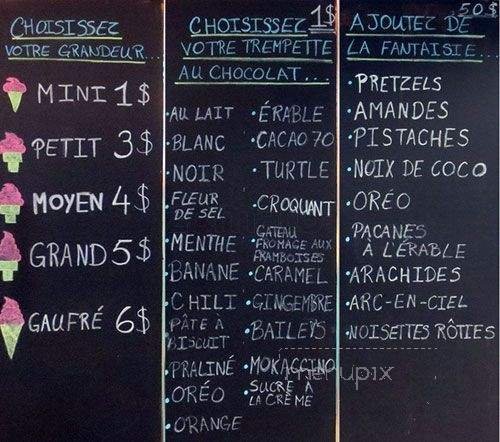 CHOISISSEZ
VOTRE GRANDEUR...
MINI 1$
PETIT 3$
MOYEN 4$
GRAND 5$
GAUFRÉ 6$
CHOISISSEZ 1$
VOTRE TREMPETTE
AU CHOCOLAT...
•AU LAIT
•BLANC
•NOIR
•FLEUR
DE SEL
•MENTHE
•BANANE
•CHILI
•PÂTE À
BISCUIT
•PRALINÉ
•ORÉO
•ORANGE
•ÉRABLE
•CACAO 70
•TURTLE
•CROQUANT
•GATEAU
FROMAGE AUX
FRAMBOISES
•CARAMEL
•GINGEMBRE
•BAILEYS
•MOKACCINO
•SUCRE À
LA CRÈME
AJOUTEZ DE .50$
LA FANTAISIE...
•PRETZELS
•AMANDES
•PISTACHES
•NOIX DE COCO
•ORÉO
•PACANES
À L'ÉRABLE
•ARACHIDES
•ARC-EN-CIEL
•NOISETTES RÔTIES
menupix